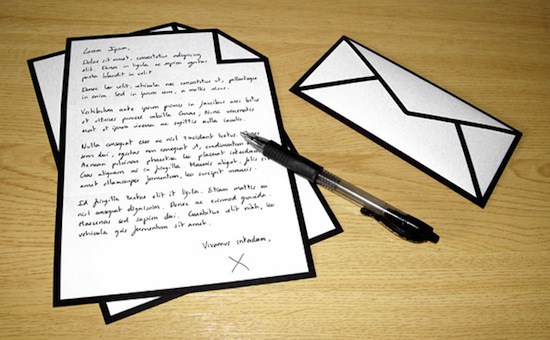 Lorem Ipsum,
Dolor sit amet, consectetur adipiscing
elit. Donec in ligula ac sapien egestas
porta blandit in velit
Donec leo velit, vehicula nec consectetur ut, pellentesque
in enim. Sed in ipsum sem, a mattis
Vestibulum ante ipsum primis in faucibus orci luctus
et ultrices posuere cubilia Curae; Nunc venenatis
erat et ipsum viverra ac sagittis nulla iaculis.
Nulla consequat eser ac nisl tincidunt luctus
sem dui, egestas non consequat ut, condimentum
Aenean pulvinar pharetra leo placerat interdum
Cras aliquam mi in fringilla. Mauris aliquet, felis
amet ullamcorper fermentum, leo suscipit mauris.
Id fringilla tortor elit et ligula. Etiam mattis ex
nisl consequat dignissim. Donec ac euismod gravida.
Maecenas sed sapien dui. Curabitur elit nibh, leo
vehicula quis fermentum sit amet.
Vivamus interdum,
X